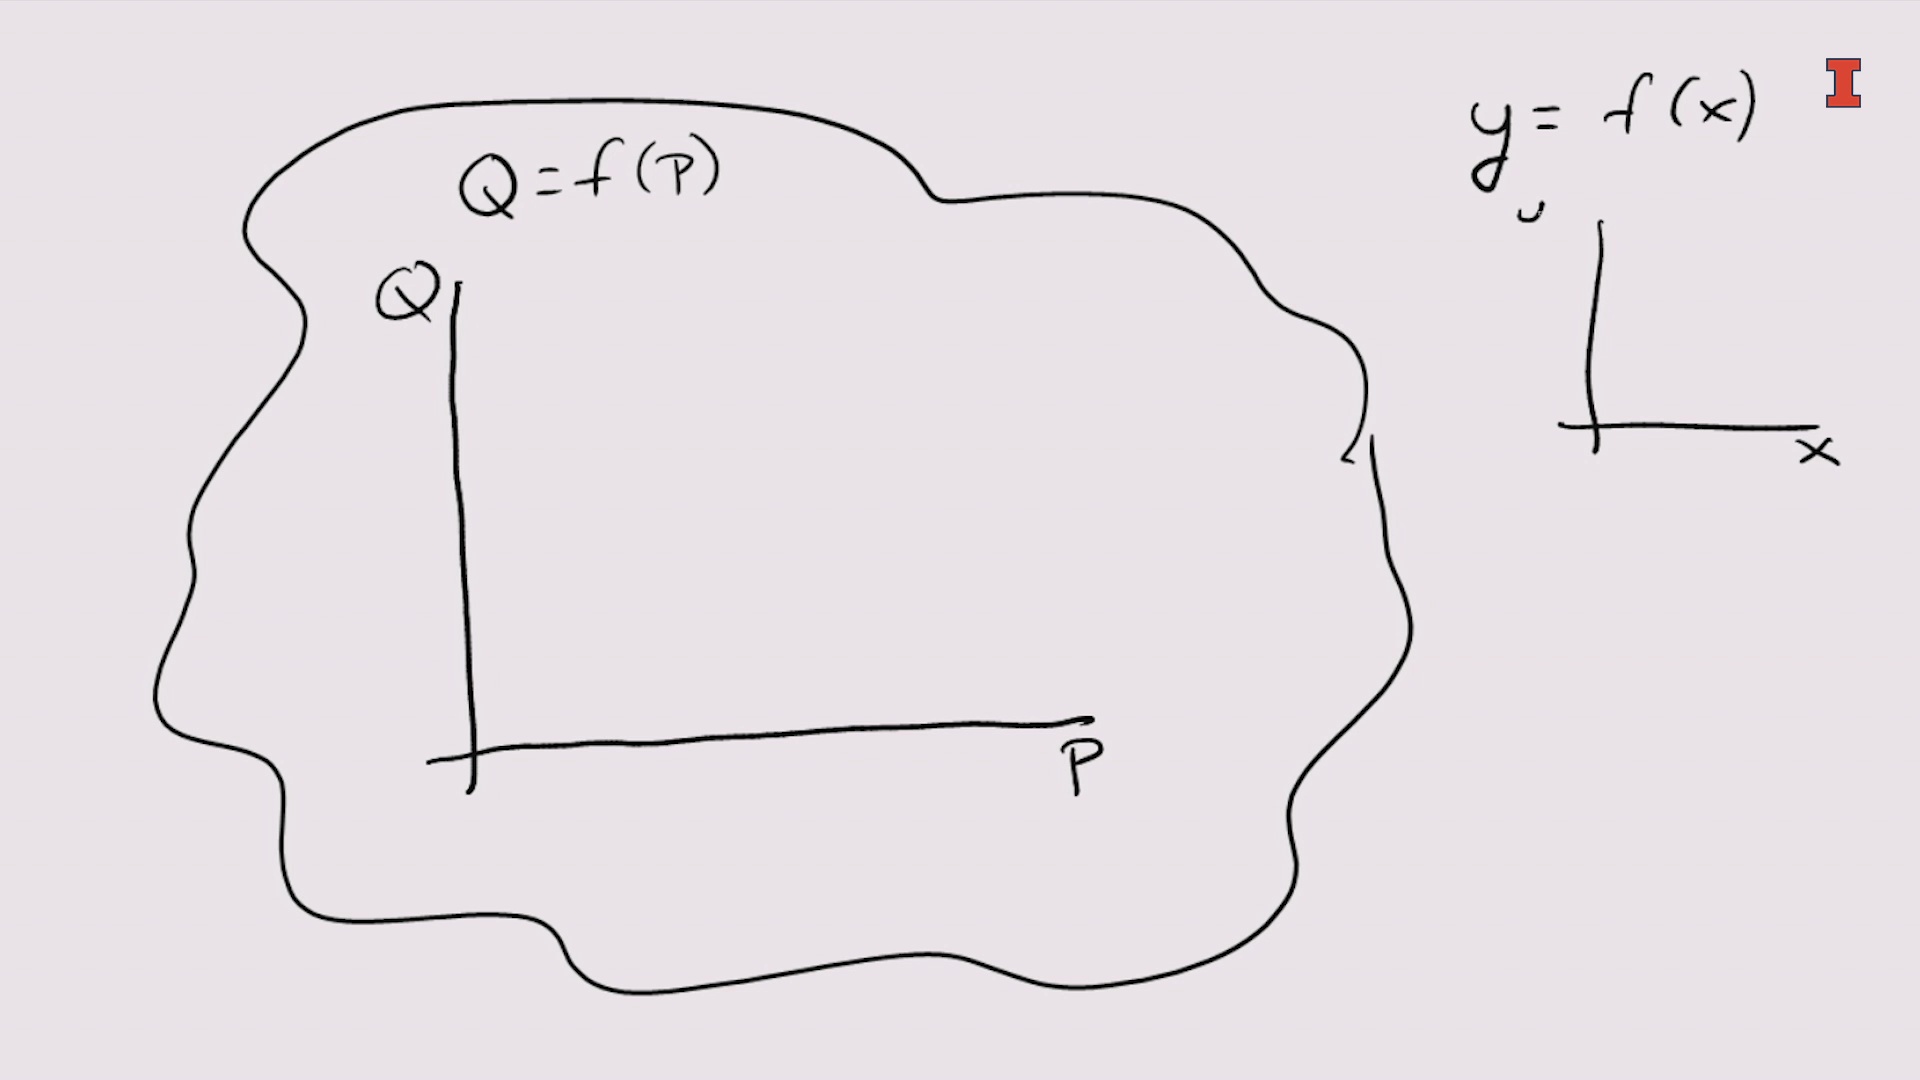 Q = f(P)
Q
P
y = f(x)
x
I